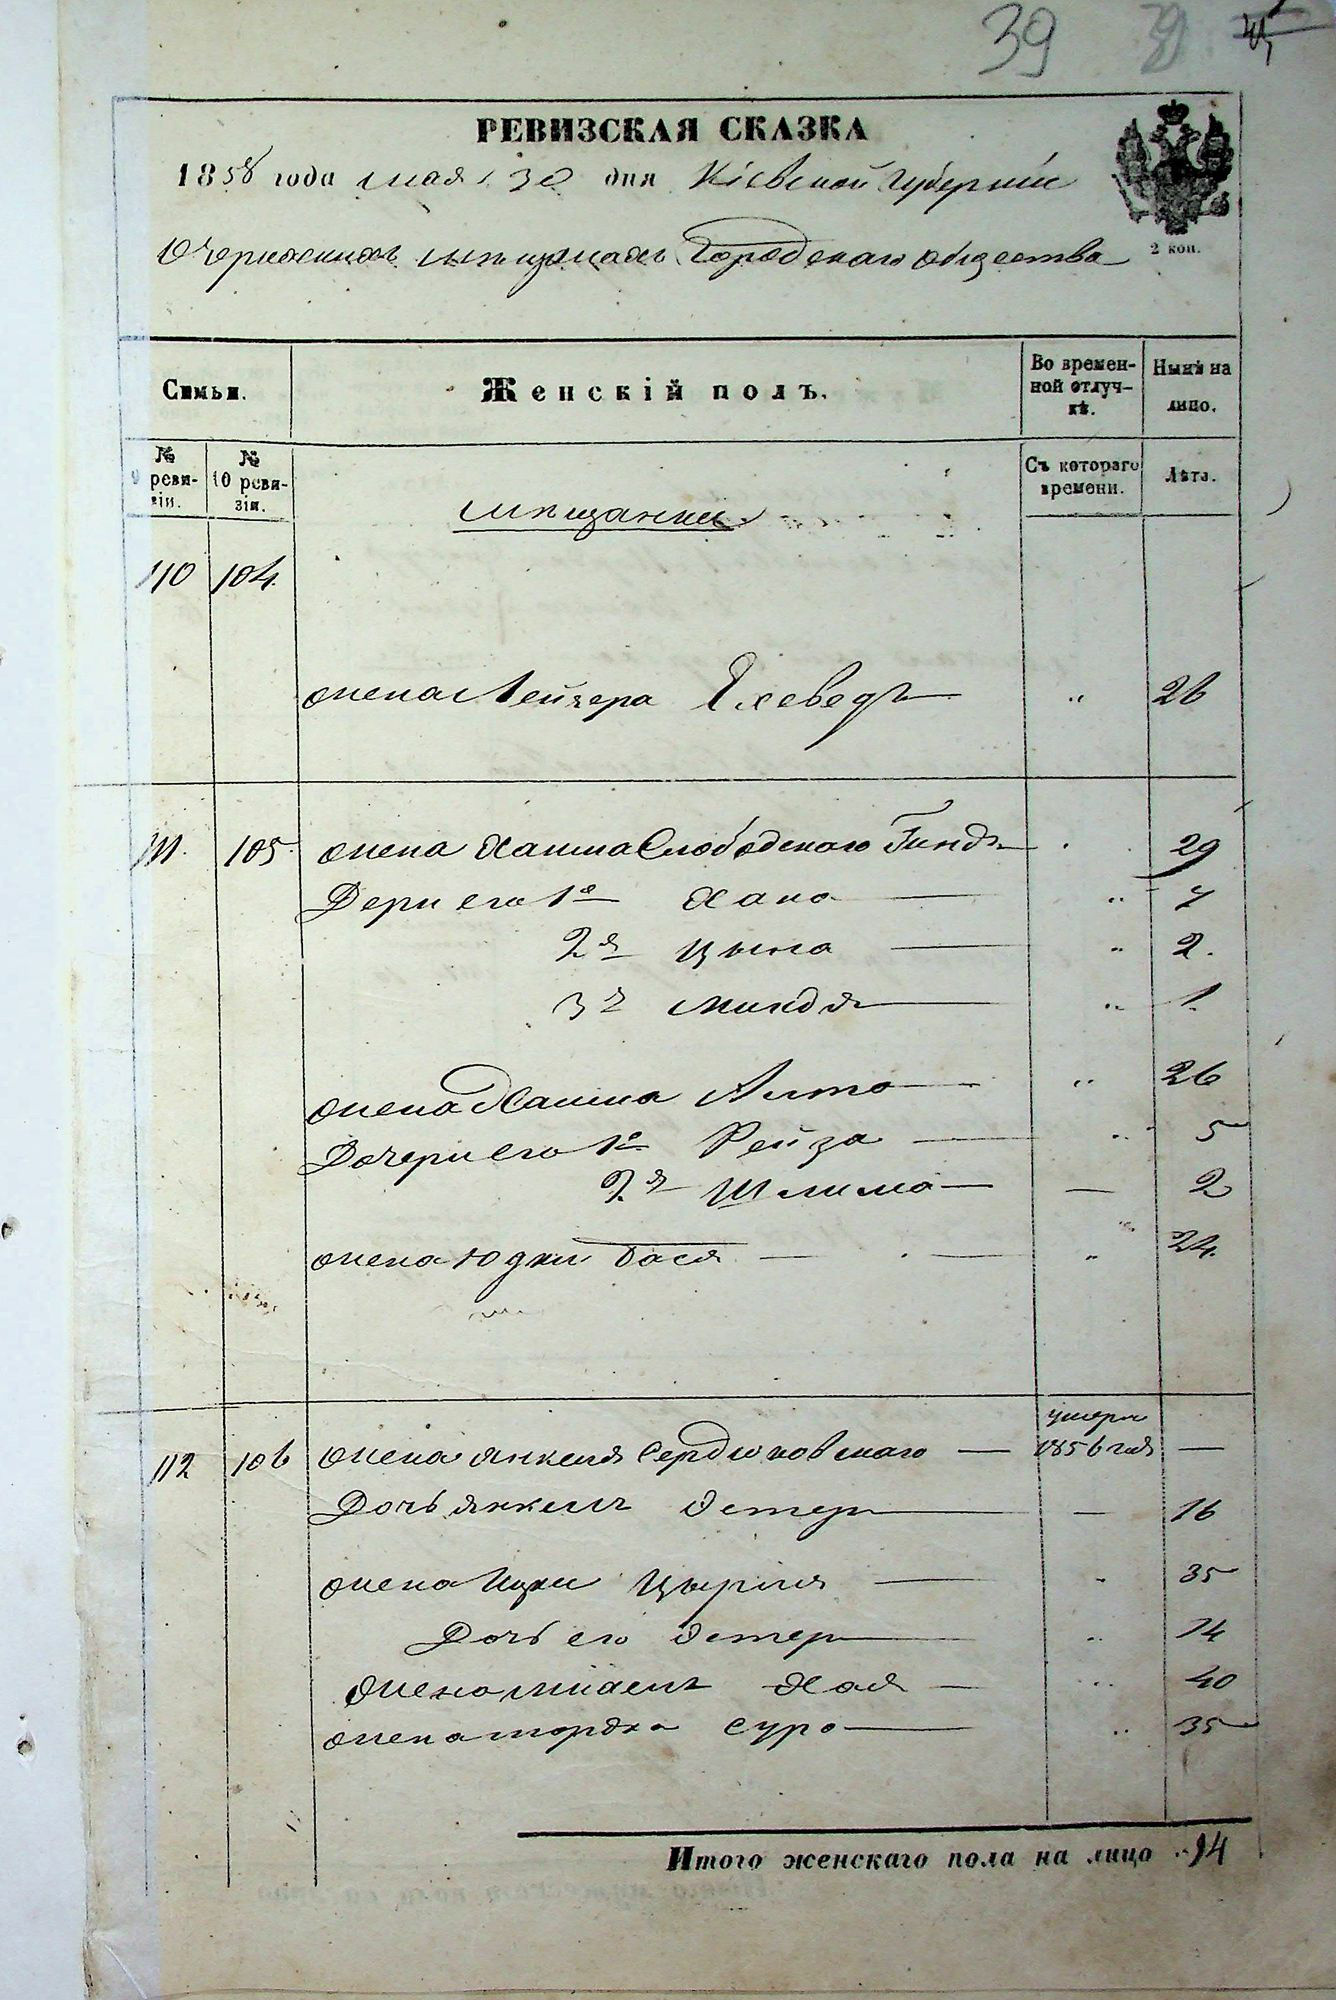 39 39
РЕВИЗСКАЯ СКАЗКА
1858 года мая 30 дня Кіевской Губерніи
О мѣщанахъ Городскаго общества
2 коп.
Семьи. Женскій полъ. Во времен-ной отлуч-кѣ. Нынѣ на лицо.
№ 9 реви-зіи. № 10 реви-зіи. Съ котораго времени. Лѣта.
мѣщанки
110 104.
жена Лейзера Ехеведъ „ 26
111. 105. жена Хаима Слободскаго Гиндя „ 29
Дочери его 1я Хана „ 7
2я Цына „ 2.
3я Миндя „ 1.
жена Хаима Алта „ 26
Дочери его 1я Рейза „ 5
2я Шлима — 2
жена Юдки Бася — „ 24.
112 106 жена Янкеля Сердюковскаго — умерла 1856 года —
Дочь Янкеля Эстер — 16
жена Ицки Цырля „ 35
Дочь его Эстер „ 14
жена Хая — „ 40
жена Мордка Сура „ 35
Итого женскаго пола на лицо 14